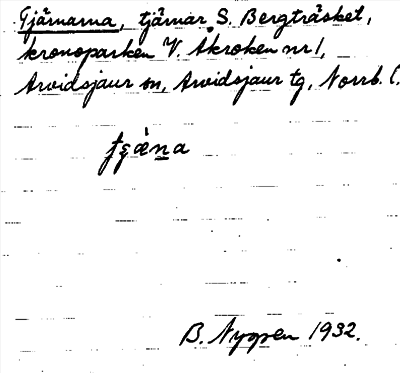 Tjärnarna, tjärnar S. Bergträsket,
kronoparken V. Åkroken nr 1,
Arvidsjaur sn, Arvidsjaur tg, Norrb. l.
B. Nygren 1932.